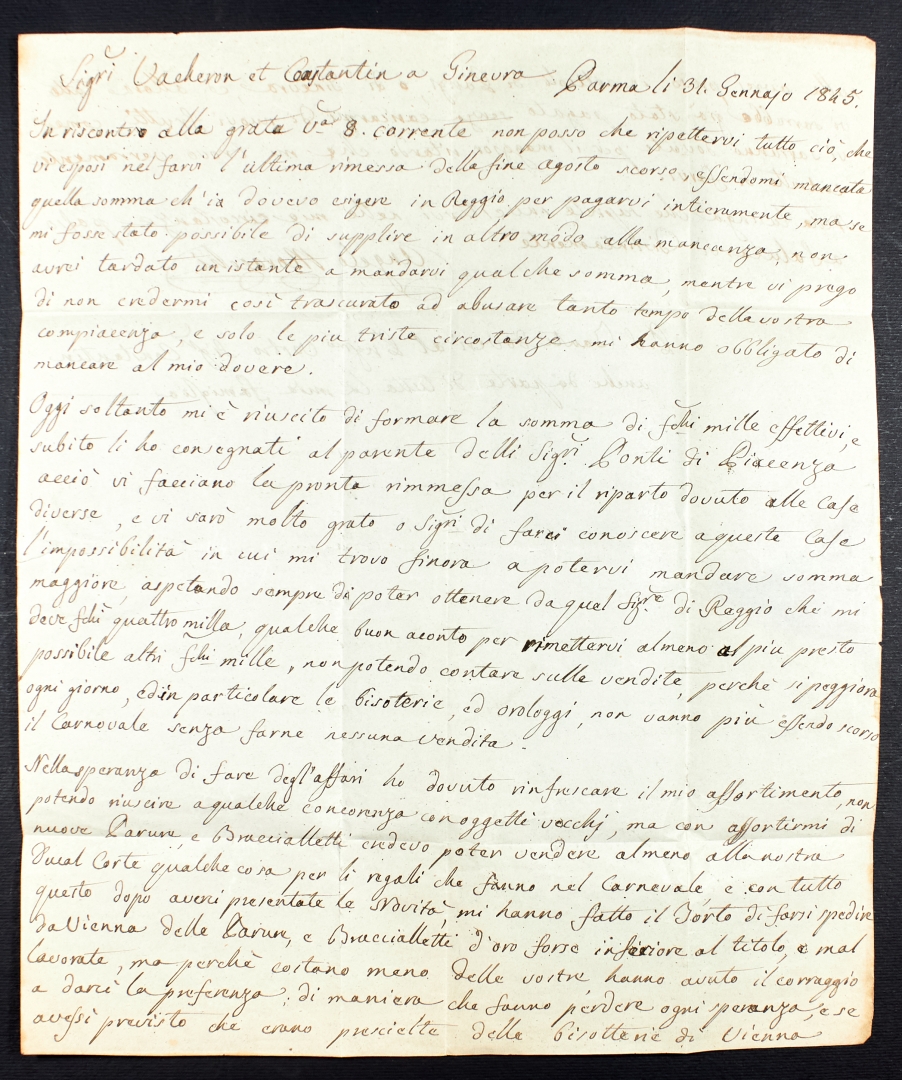 Sigri Vacheron et Constantin a Ginevra
Parma li 31. Gennajo 1845.
In riscontro alla grata Va 8. corrente non posso che ripettervi tutto ciò, che
vi esposi nel farvi l'ultima rimessa della fine agosto scorso, essendomi mancata
quella somma ch'io dovevo esigere in Reggio per pagarvi intieramente, ma se
mi fosse stato possibile di supplire in altro módo alla mancanza, non
avrei tardato un istante a mandarvi qualche somma, mentre vi prego
di non credermi così trascurato ad abusare tanto tempo della vostra
compiacenza, e solo le piu triste circostanze mi hanno obbligato di
mancare al mio dovere.
Oggi soltanto mi è riuscito di formare la somma di fchi mille effettivi, e
subito li ho consegnati al parente delli Sigri Ponti di Piacenza
acciò vi facciano la pronta rimmessa per il riparto dovuto alle Case
diverse, e vi sarò molto grato o Sigri di farci conoscere a queste Case
l'impossibilità in cui mi trovo finora a potervi mandare somma
maggiore, aspetando sempre di poter ottenere da quel Sigre di Reggio che mi
deve fchi quattro milla, qualche buon aconto per rimettervi almeno al piu presto
possibile altri fchi mille, non potendo contare sulle vendite, perchè si peggiora
ogni giorno, ed in particolare le bisoterie, ed orologgi, non vanno più essendo scorso
il Carnovale senza farne nessuna vendita.
Nella speranza di fare degl'affari ho dovuto rinfrescare il mio assortimento, non
potendo riuscire a qualche concorenza con oggetti vecchj, ma con assortirmi di
nuove Parure, e Braccialletti credevo poter vendere almeno alla nostra
Ducal Corte qualche cosa per li regali che fanno nel Carnevale e con tutto
questo dopo averi presentate le Novità, mi hanno fatto il Torto di farsi spedire
da Vienna delle Parure, e Braccialletti d'oro forse inferiore al titolo, e mal
lavorate, ma perchè costano meno delle vostre hanno avuto il corraggio
a darci la preferenza; di maniera che fanno perdere ogni speranza, e se
avessi previsto che erano prescielte della bisotterie di Vienna